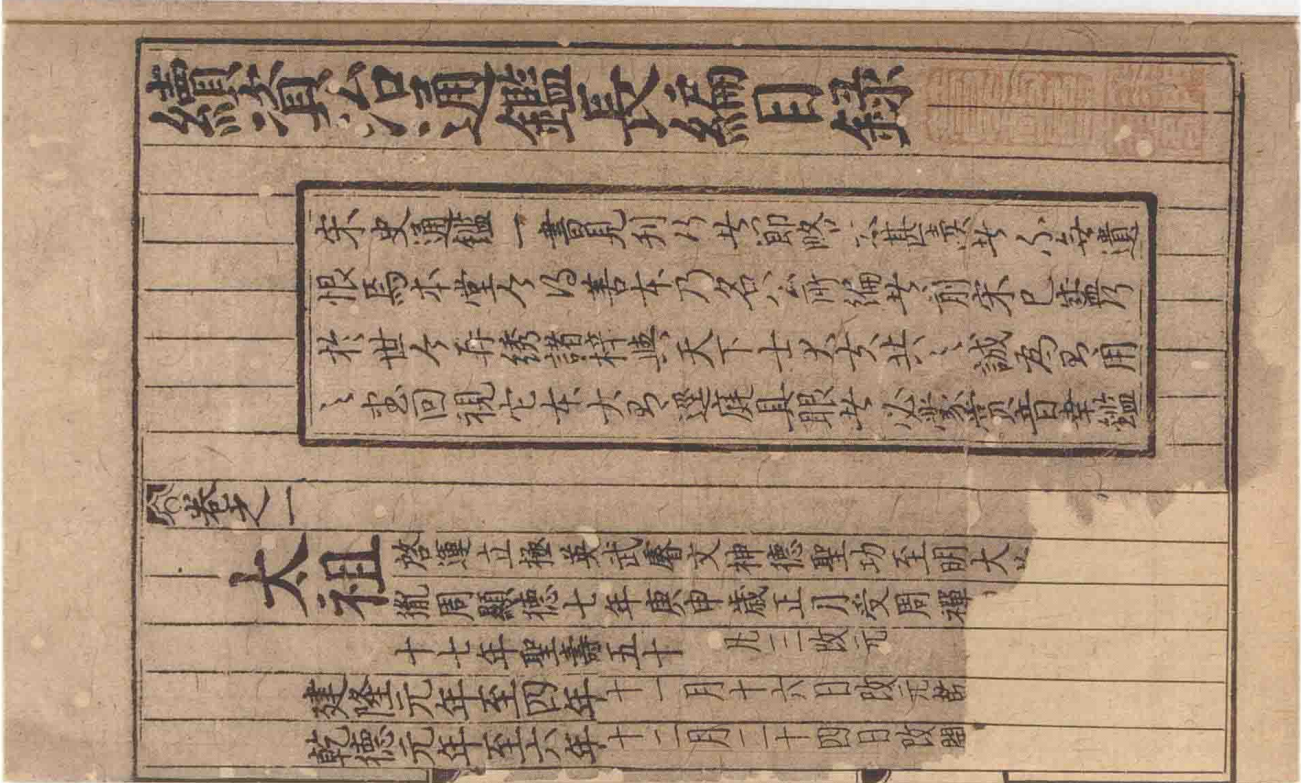 續資治通鑑長編目録
宋史通鑑一書見刊行者節略太甚讀者不無遺
恨焉本堂今得善本乃名公所編者前宋已盛行
於世今再綉諸梓與天下士大夫共之誠爲有用
之書回視它本大有逕庭具眼者必蒙賞音幸鑑
卷之一
太祖
啓運立極英武睿文神德聖功至明大
周顯德七年庚申歲正月受周禪
十七年聖壽五十 凡三改元
建隆元年至四年十一月十六日改元乾
乾德元年至六年十一月二十四日改開